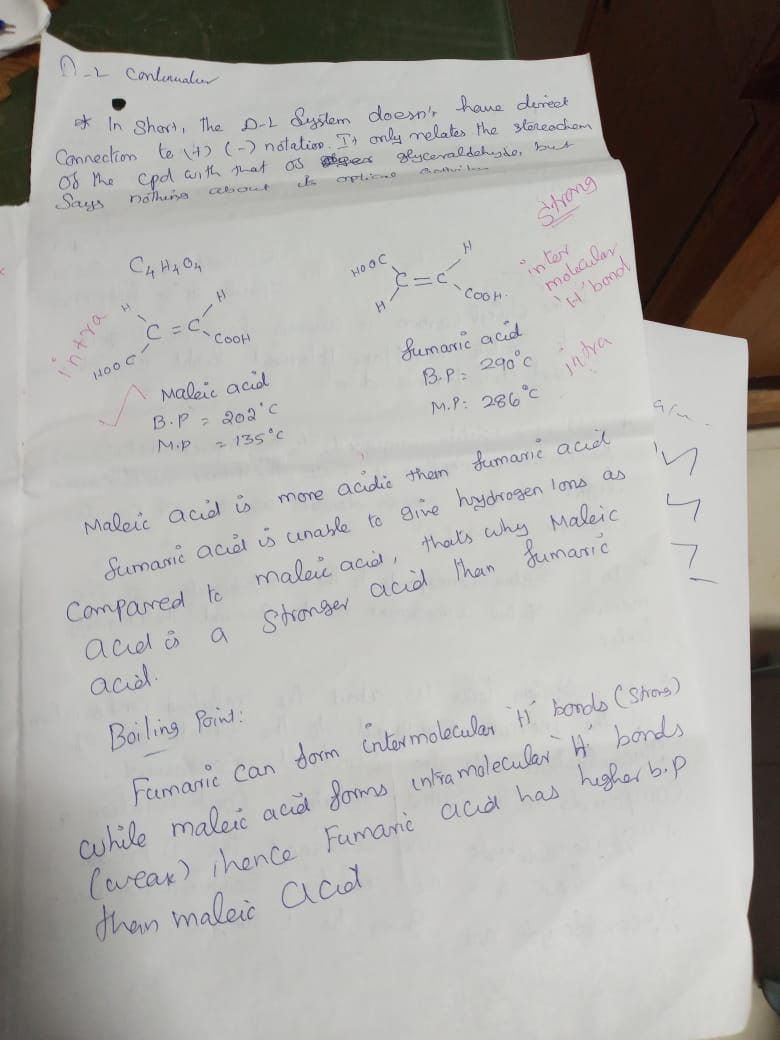 D-L Continuation
* In Short, the D-L System doesn't have direct
Connection to (+) (-) notation. It only relates the stereochem
of the cpd with that of glyceraldehyde, but
Says nothing about its optical
Strong
C4H4O4
H
H
C = C
HOOC
COOH
intra
Maleic acid
B.P = 202°C
M.P = 135°C
HOOC
H
C = C
H
COOH.
inter
molecular
'H' bond
fumaric acid
B.P = 290°C
M.P: 286°C
intra
Maleic acid is more acidic them fumaric acid
fumaric acid is unable to give hydrogen Ions as
Compared to maleic acid, thats why Maleic
acid is a Stronger acid than fumaric
acid.
Boiling Point:
Fumaric Can form intermolecular 'H' bonds (Strong)
while maleic acid forms intramolecular 'H' bonds
(weak) , hence Fumaric acid has higher b.p
then maleic acid